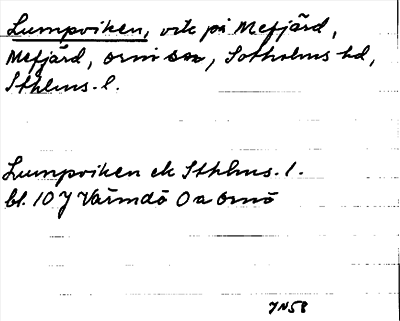 Lumpviken, vik på Mefjärd,
Mefjärd, Ornö sn, Sotholms hd,
Sthlms. l.
Lumpviken ek Sthlms. l.
bl. 10 J Värmdö Oa Ornö
JN58